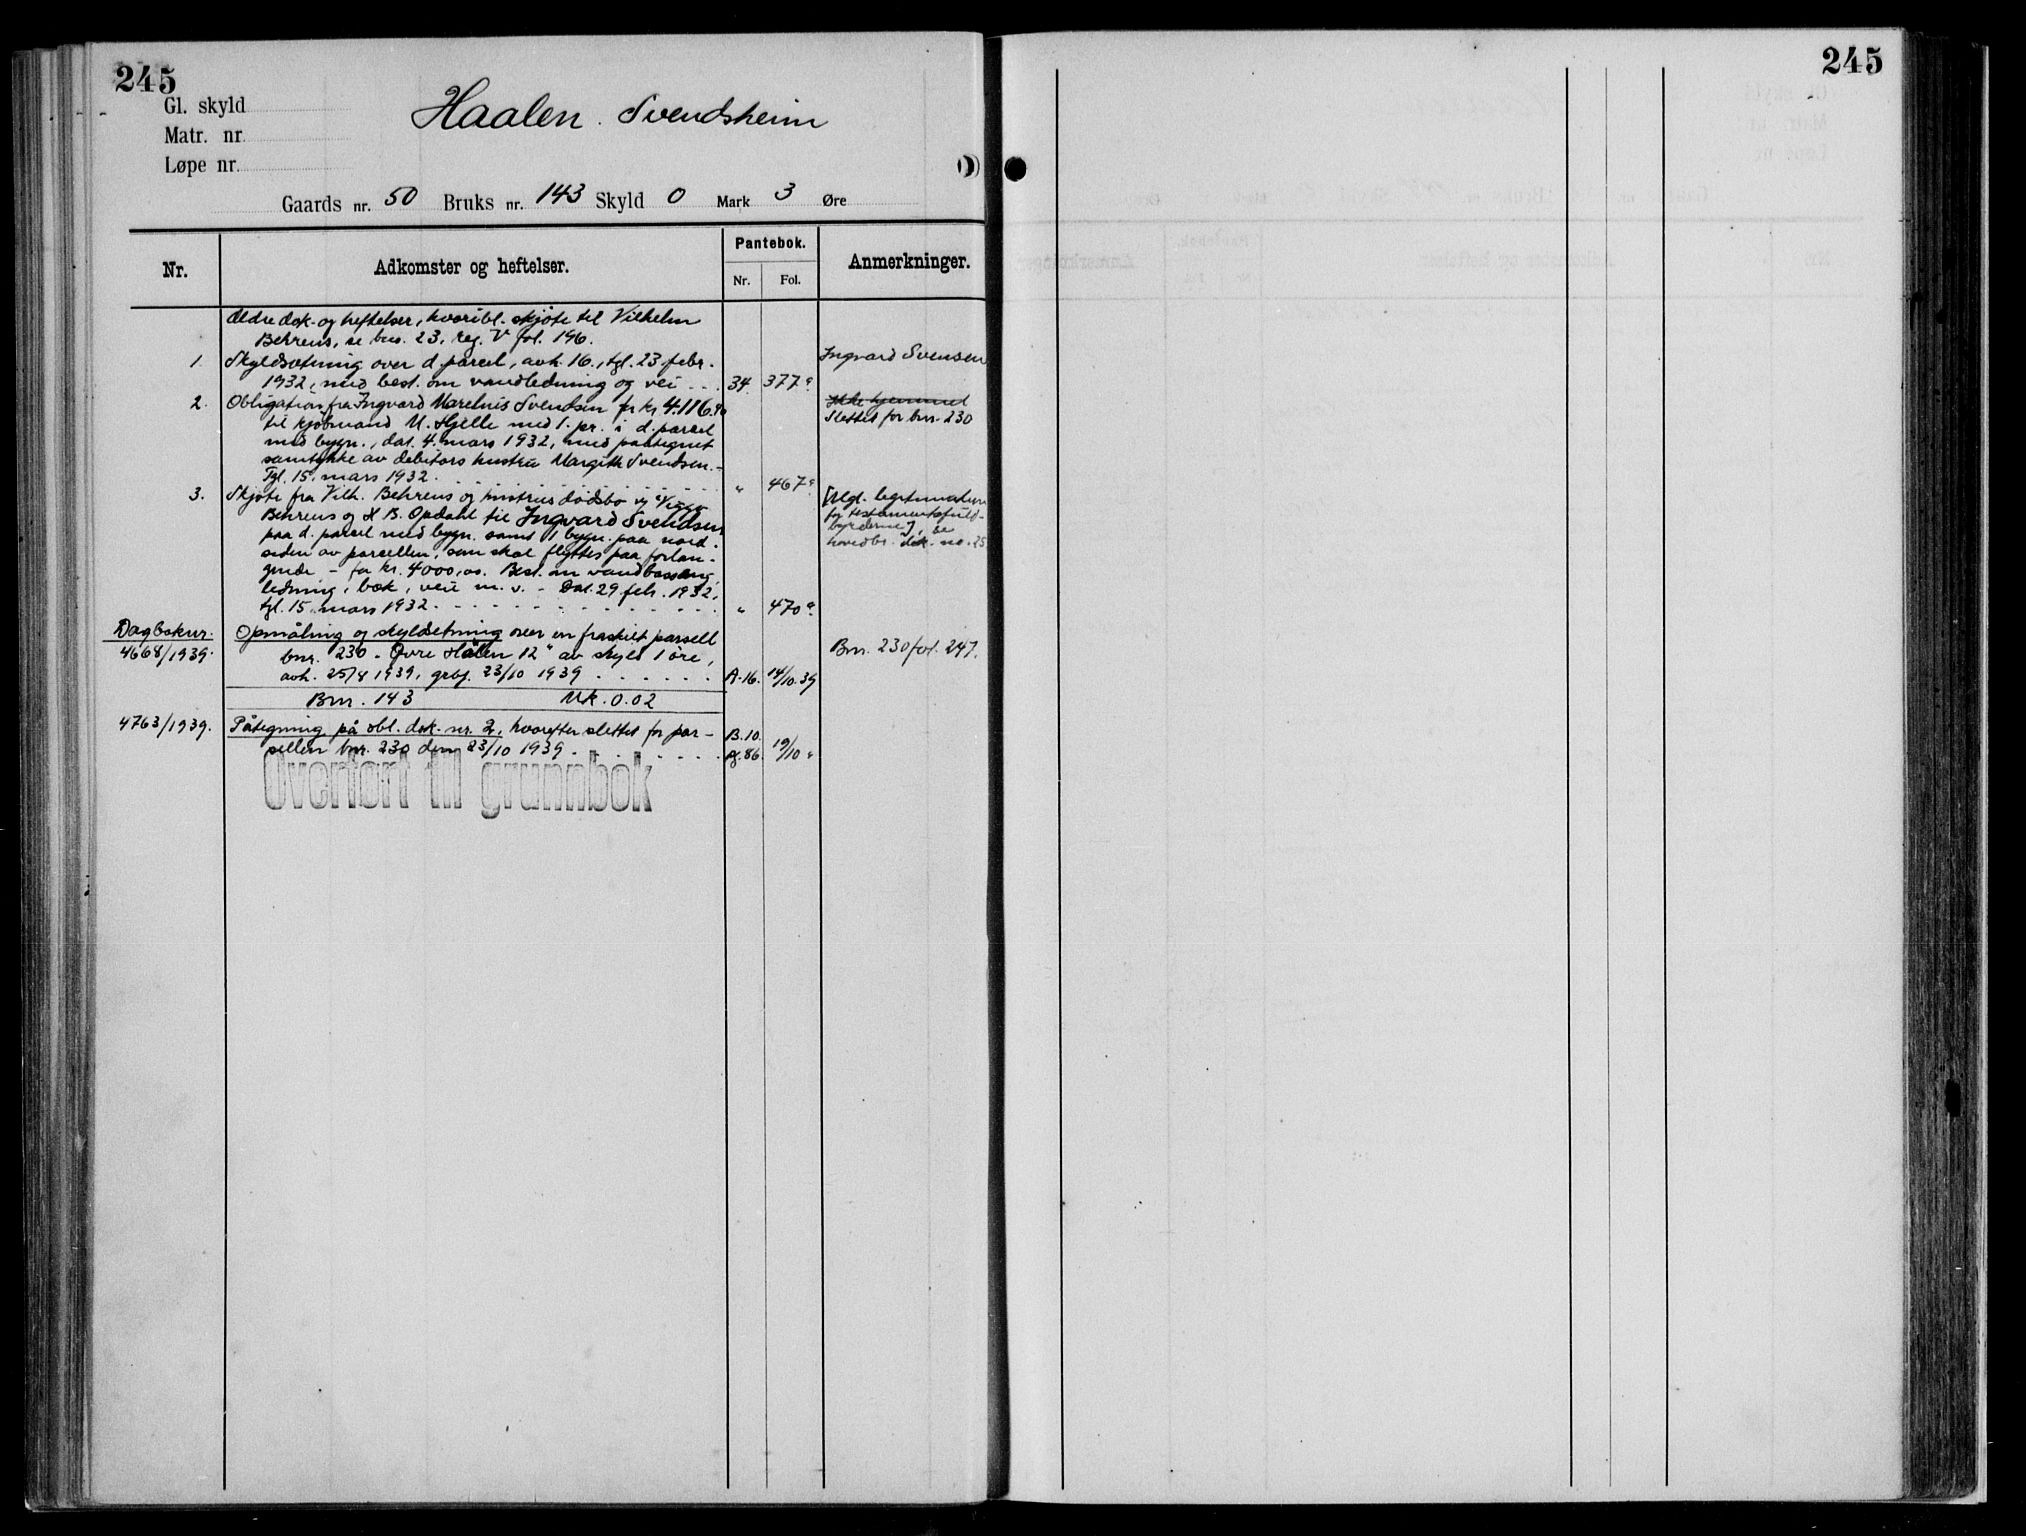 245
245
Gl. skyld
Haalen. Svendsheim
Matr. nr.
Løpe nr.
Gaards nr. 50 Bruks nr. 143 Skyld 0 Mark 3 Øre
Nr.
Adkomster og heftelser.
Pantebok.
Nr.
Fol.
Anmerkninger.
Ældre dok. og heftelser, hvoribl. skjøte til Vilhelm
Behrens, se bno. 23, reg. V fol. 196.
1. Skyldsætning over d. parcel, avh. 16., tgl. 23 febr. Ingvard Svensen
1932, med best. om vandledning og vei . . . 34. 377a.
2. Obligation fra Ingvard Marelius Svendsen for kr. 4.116.90 Ikke hjemmel
til kjøbmand M. Hjelle med 1. pr. i d. parcel Slettet for bnr. 230
med bygn., dat. 4. mars 1932, med paategnet
samtykke av debitors hustru Margith Svendsen.-
Tgl. 15. mars 1932. . . . " 467a.
3. Skjøte fra Vilh. Behrens og hustrus dødsbo v/ Viggo [Mgl. legitimation
Behrens og H. B. Opdahl til Ingvard Svendsen for testamentsfuld-
paa d. parcel med bygn. samt 1 bygn. paa nord- byrderne], se
siden av parcellen, som skal flyttes paa forlan- hovedbr. dok. no. 25
gende - for kr. 4000,00. Best. om vandbasseng,
ledning, bæk, veie m. v. - Dat. 29 febr. 1932,
tgl. 15. mars 1932. . . . " 470a.
Dagboknr.
4668/1939. Opmåling og skyldsetning over en fraskilt parsell
bnr. 230 "Øvre Hålen 12" av skyld 1 øre, Bnr. 230 fol. 247.
avh. 25/8 1939, grbf. 23/10 1939 . . . . A.16. 14/10.39
Bnr. 143 Mk. 0.02
4763/1939. Påtegning på obl. dok. nr. 2, hvorefter slettet for par- B.10.
sellen bnr. 230 den 23/10 1939. . . . . pg. 86. 19/10 "
Overført til grunnbok